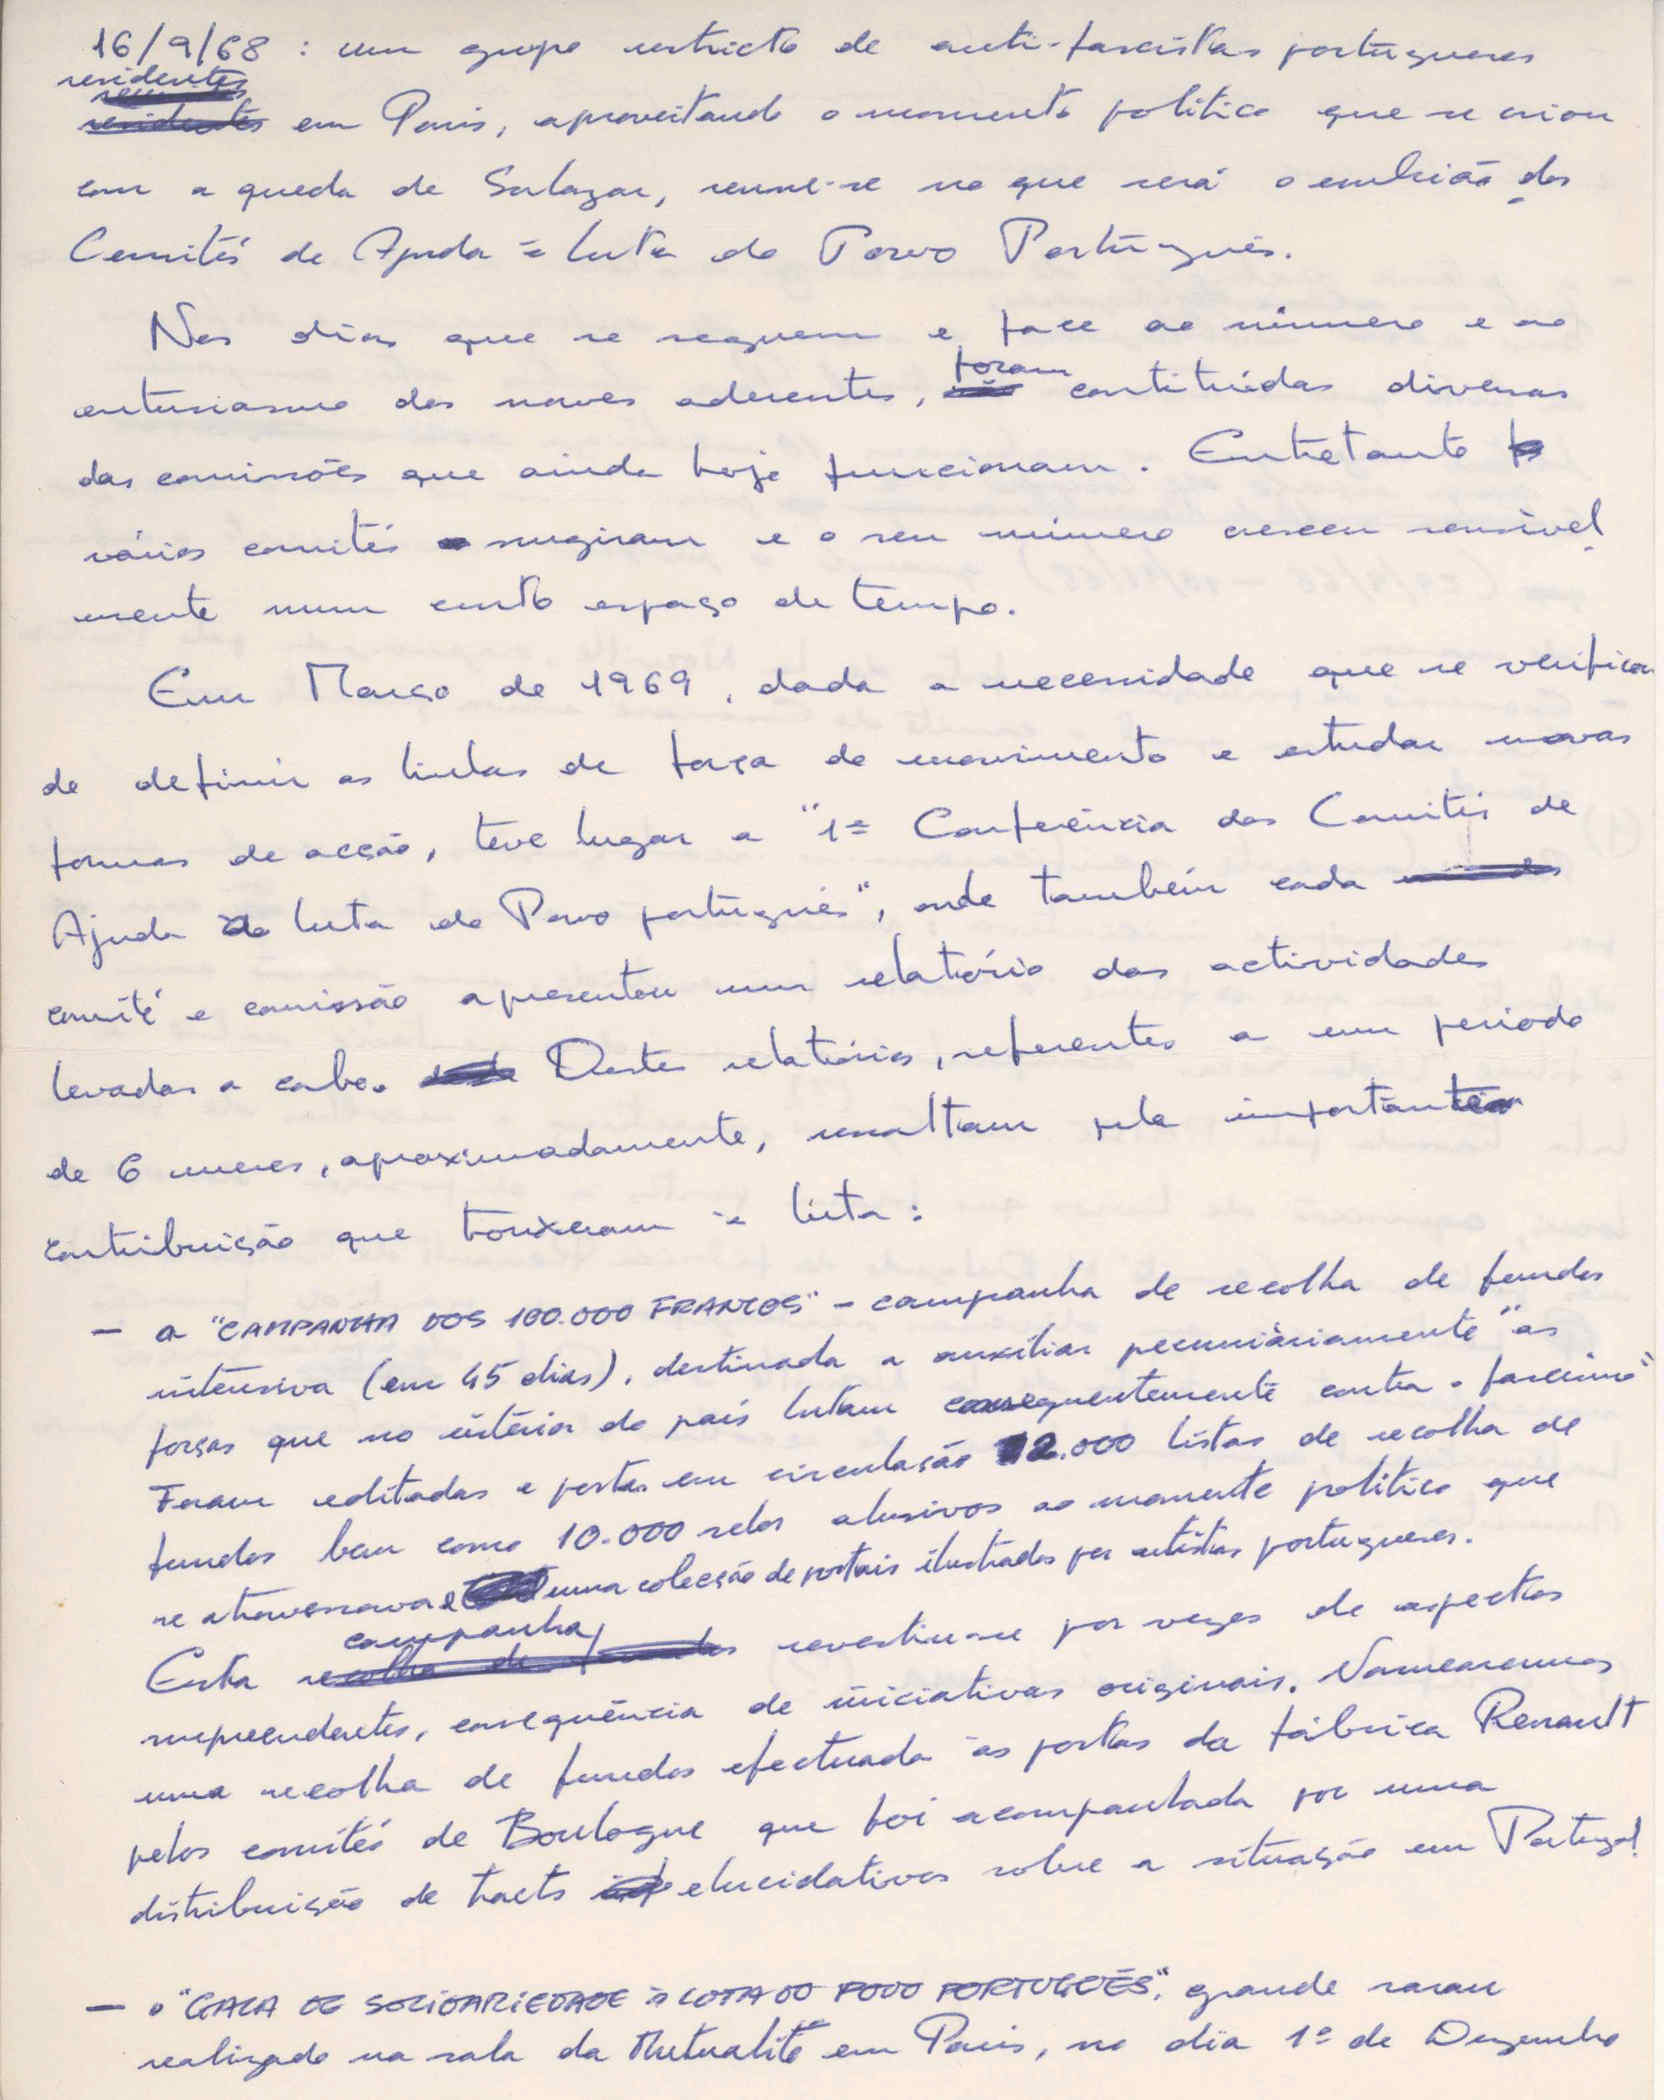 16/9/68 : um grupo restricto de anti-fascistas portugueses
residentes
residentes em Paris, aproveitando o momento politico que se criou
com a queda de Salazar, reune-se no que será o embrião dos
Comités de Ajuda à luta do Povo Português.
Nos dias que se seguem e face ao número e ao
entusiasmo dos novos aderentes, foram constituídas diversas
das comissões que ainda hoje funcionam. Entretanto
vários comités surgiram e o seu número cresceu sensivel
mente num curto espaço de tempo.
Em Março de 1969, dada a necessidade que se verificou
de definir as linhas de força do movimento e estudar novas
formas de acção, teve lugar a "1ª Conferência dos Comités de
Ajuda à luta do Povo português", onde também cada
comité e comissão apresentou um relatório das actividades
levadas a cabo. Destes relatórios, referentes a um periodo
de 6 meses, aproximadamente, ressaltam pela importante
contribuição que trouxeram à luta:
- a "CAMPANHA DOS 100.000 FRANCOS" - campanha de recolha de fundos
intensiva (em 45 dias), destinada a auxiliar pecuniàriamente "as
forças que no interior do país lutam consequentemente contra o fascismo"
Foram editadas e postas em circulação 12.000 listas de recolha de
fundos bem como 10.000 selos alusivos ao momento politico que
se atravessava e uma colecção de postais ilustrados por artistas portugueses.
campanha
Esta recolha de fundos revestiu-se por vezes de aspectos
surpreendentes, consequência de iniciativas originais. Nomearemos
uma recolha de fundos efectuada às portas da fábrica Renault
pelos comités de Boulogne que foi acompanhada por uma
distribuição de tracts elucidativos sobre a situação em Portugal.
- o "GALA DE SOLIDARIEDADE à LUTA DO POVO PORTUGUÊS", grande sarau
realizado na sala da Mutualité em Paris, no dia 1º de Dezembro